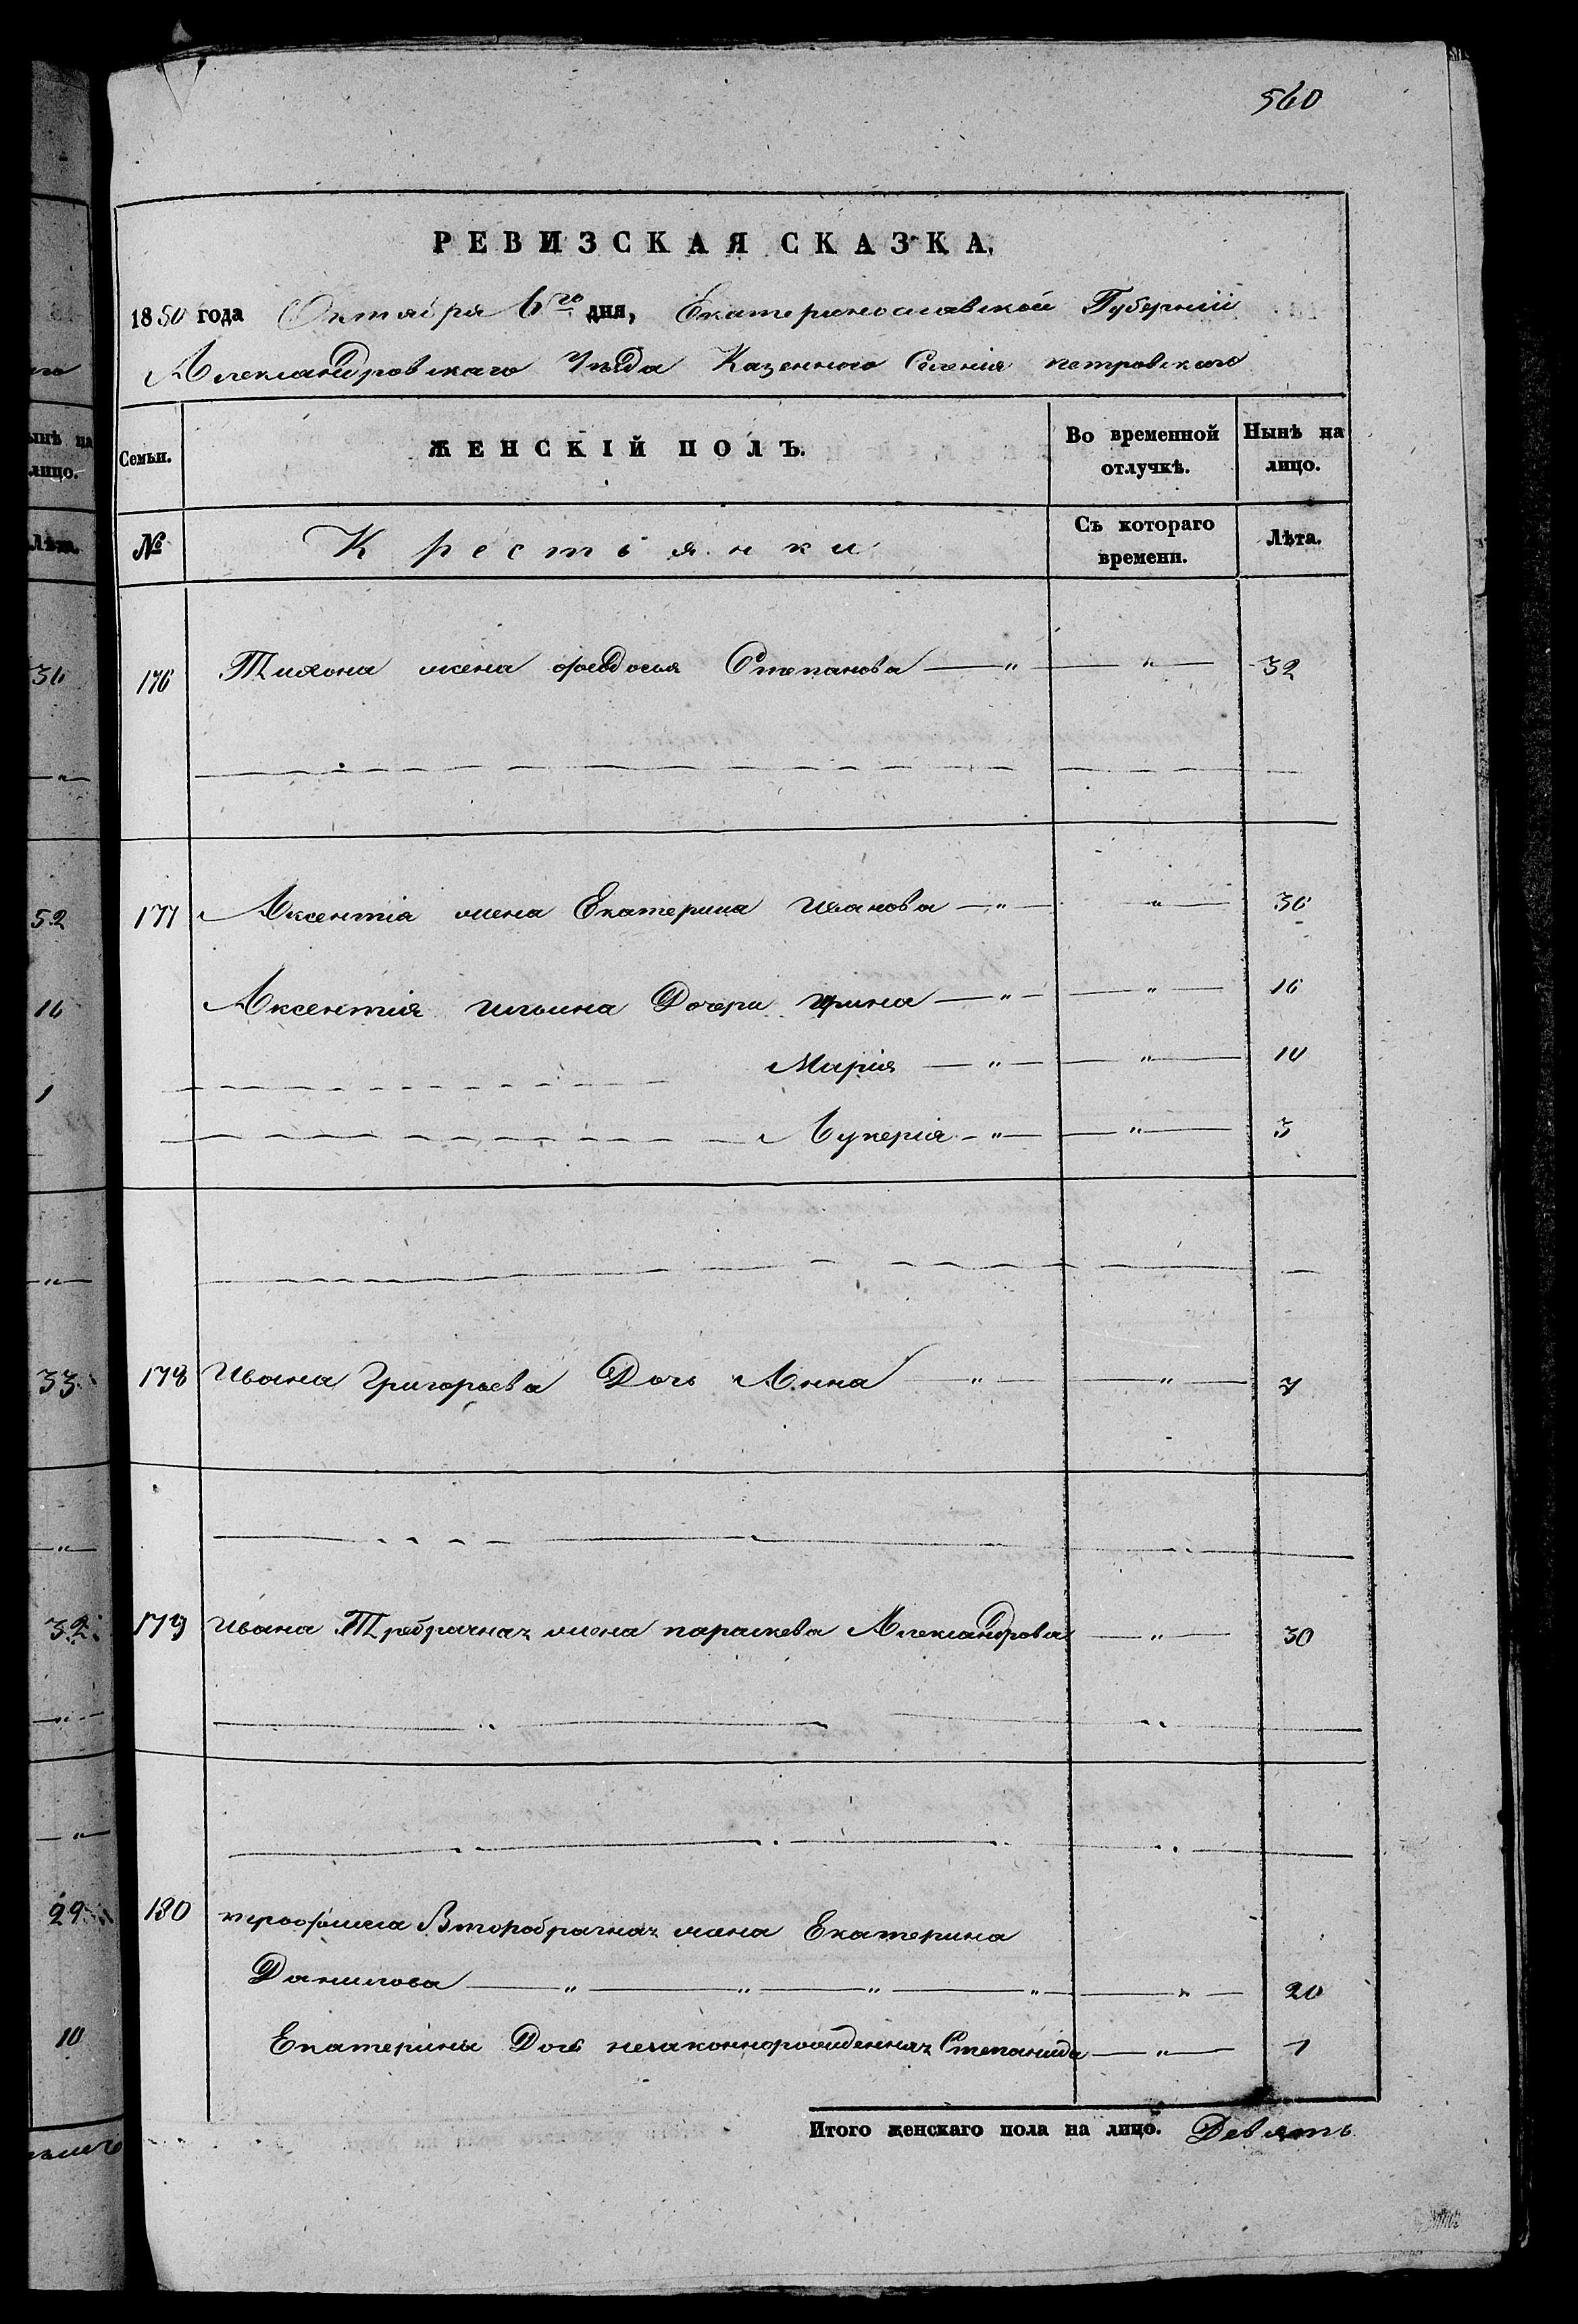 560
РЕВИЗСКАЯ СКАЗКА,
1850 года Октября 6го дня, Екатеринославской Губернии
Александровского Уѣзда Казенного Селенія петровского
Семьи. ЖЕНСКІЙ ПОЛЪ. Во временной отлучкѣ. Нынѣ на лицо.
№ Крестьянки Съ котораго времени. Лѣта.
176 Тихона жена феодосия Степанова — " — " — 32
177 Аксентіа жена Екатерина Иванова — " — " — 36
Аксентія Ильина Дочери Ирина — " — " — 16
Марія — " — " — 10
Лукерія — " — " — 3
178 Ивана Григорьева Дочь Анна " — " — 7
179 Ивана Требрачная жена параскева Александрова — " — 30
180 Второбрачная жена Екатерина
Данилова — " — " — " — " — " — 20
Екатерины Дочь незаконнорожденная Степанида — " — 1
Итого женскаго пола на лицо. Девять
нынѣ на
лицо.
Лѣта.
36
52
16
1
33
32
29
10